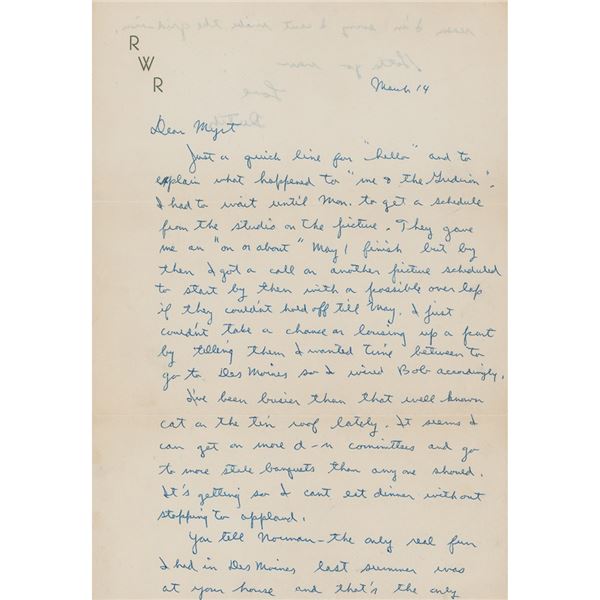 R
W
R
March 14
Dear Myrt
Just a quick line for "hello" and to
explain what happened to "me & the Gridiron".
I had to wait until Mon. to get a schedule
from the studio on the picture. They gave
me an "on or about" May 1 finish but by
then I got a call on another picture scheduled
to start by then with a possible over lap
if they couldn't hold off till May. I just
couldn't take a chance on lousing up a part
by telling them I wanted time between to
go to Des Moines so I wired Bob accordingly.
I've been busier than that well known
cat on the tin roof lately. It seems I
can get on more d-n committees and go
to more stale banquets than any one should.
It's getting so I cant eat dinner without
stopping to applaud.
You tell Norman - the only real fun
I had in Des Moines last summer was
at your house and that's the only